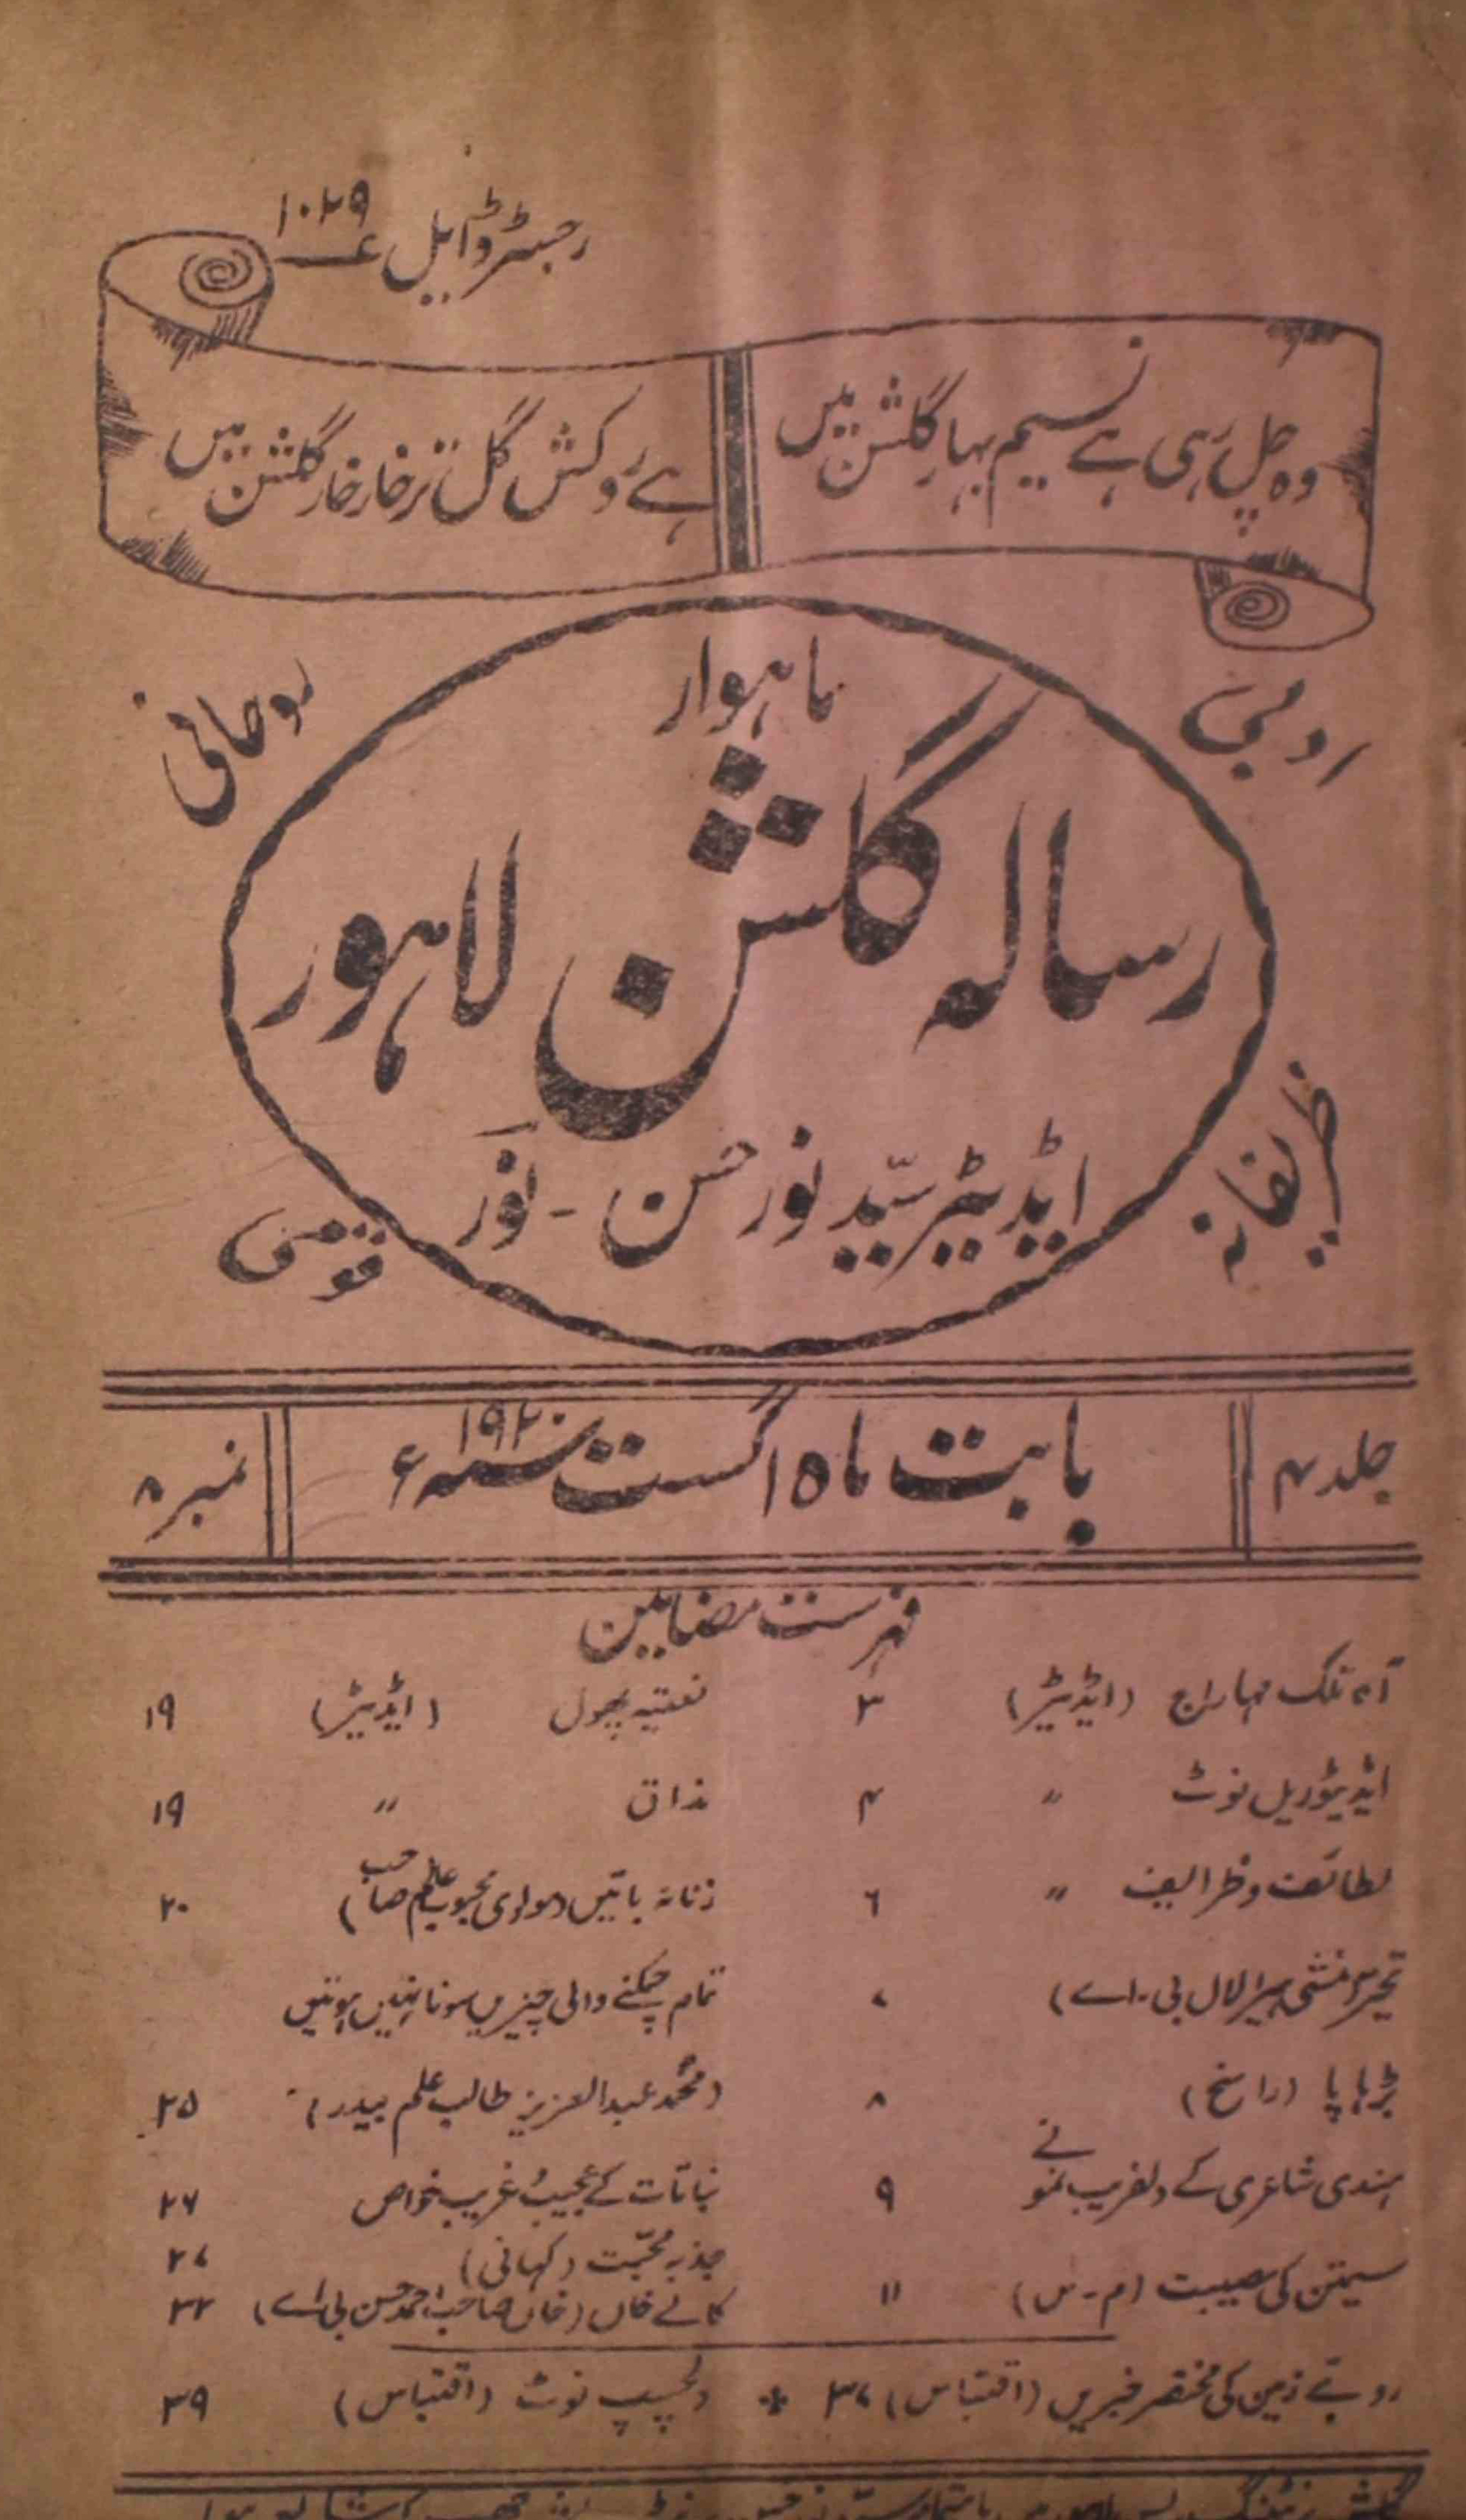 رجسٹرڈ ایل ۱۰۲۹
وہ چل رہی ہے نسیم بہار گلشن میں
ہے روکش گل تر خار خار گلشن میں
ماہوار
ادبی
روحانی
رسالہ گلشن لاہور
ظریفانہ
قومی
ایڈیٹر سیّد نور حسن - نور
جلد ۷
بابت ماہ اگست سنہ ۱۹۲۰ء
نمبر ۸
فہرست مضامین
آہ تلک مہاراج (ایڈیٹر) ۳
ایڈیٹوریل نوٹ " ۴
لطائف و ظرایف " ۶
تحیر (منشی ہیرا لال بی-اے) ۷
بڑہاپا (راسخ) ۸
ہندی شاعری کے دلفریب نمونے ۹
سیمتن کی مصیبت (م-س) ۱۱
نعتیہ پھول (ایڈیٹر) ۱۹
مذاق " ۱۹
زنانہ باتیں (مولوی محبوب عالم صاحب) ۲۰
تمام چمکنے والی چیزیں سونا نہیں ہوتیں
(محمّد عبد العزیز طالب علم بیدر) ۲۵
نباتات کے عجیب و غریب خواص ۲۶
جذبہ محبّت (کہانی) ۲۷
کالے خاں (خاں صاحب احمد حسن بی اے) ۳۲
روئے زمین کی مختصر خبریں (اقتباس) ۳۷ * دلچسپ نوٹ (اقتباس) ۳۹